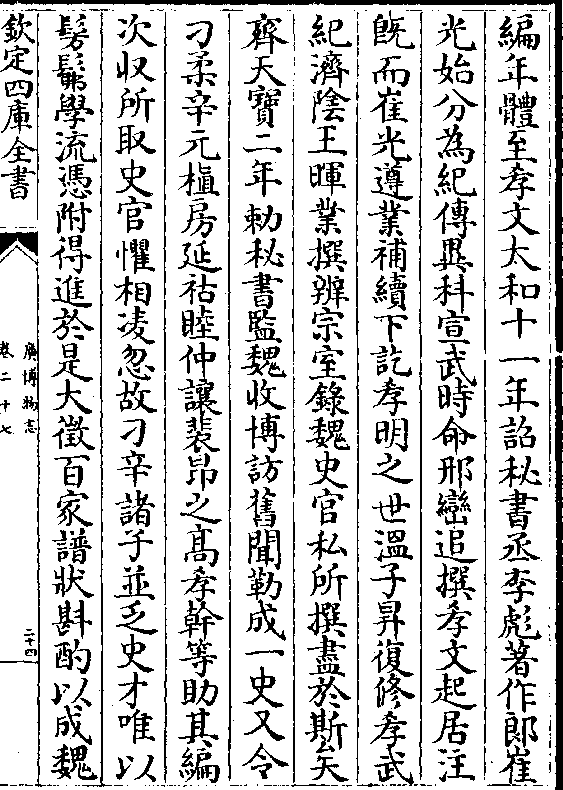 編年體至孝文太和十一年詔秘書丞李彪著作郎崔
光始分為紀傳異科宣武時命邢巒追撰孝文起居注
既而崔光遵業補續下訖孝明之世溫子昇復修孝武
紀濟陰王暉業撰辨宗室錄魏史官私所撰盡於斯矣
齊天寶二年勅秘書監魏收博訪舊聞勒成一史又令
刁柔辛元植房延祐睦仲讓裴昂之髙孝幹等助其編
次収所取史官懼相凌忽故刁辛諸子並乏史才唯以
髣髴學流憑附得進於是大徵百家譜狀斟酌以成魏
欽定四庫全書
廣博物志
卷二十七
二十四